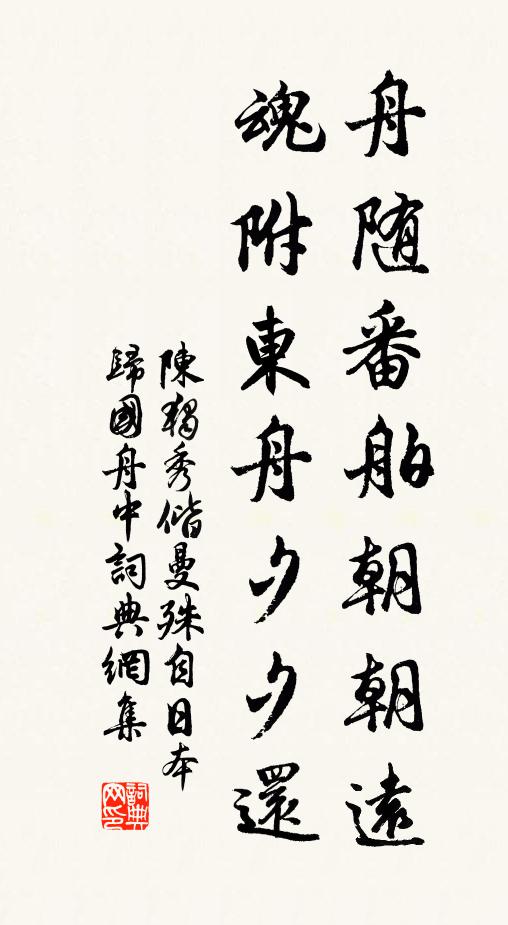 舟随番舶朝朝遠
魂附東舟夕夕還
陳獨秀偕曼殊自日本
歸國舟中詞典網集
詞典网印